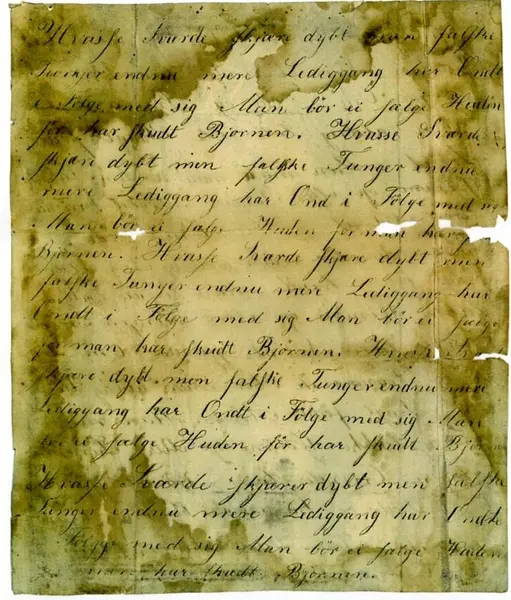 Hvasse Svarde skjære dybt men falske
Tunger endnu mere Lediggang har Ondt
i Følge med sig Man bör ei sælge Huden
för har skudt Bjørnen. Hvasse Svarde
skjære dybt men falske Tunger endnu
mere Lediggang har Ond i Følge med
Man bör ei sælge Huden för man
Bjørnen. Hvasse Svarde skjære dybt men
falske Tunger endnu mere Lediggang har
Ondt i Følge med sig Man bör ei sælge
för man har skudt Bjørnen.
skjære dybt men falske Tunger endnu mere
Lediggang har Ondt i Følge med sig Man
bör ei sælge Huden för har skudt Bjørn
Hvasse Sværde skjærer dybt men falske
Tunger endnu mere Lediggang har Ondt
Følgge med sig Man bör ei sælge Huden
man har skudt Bjørnen.